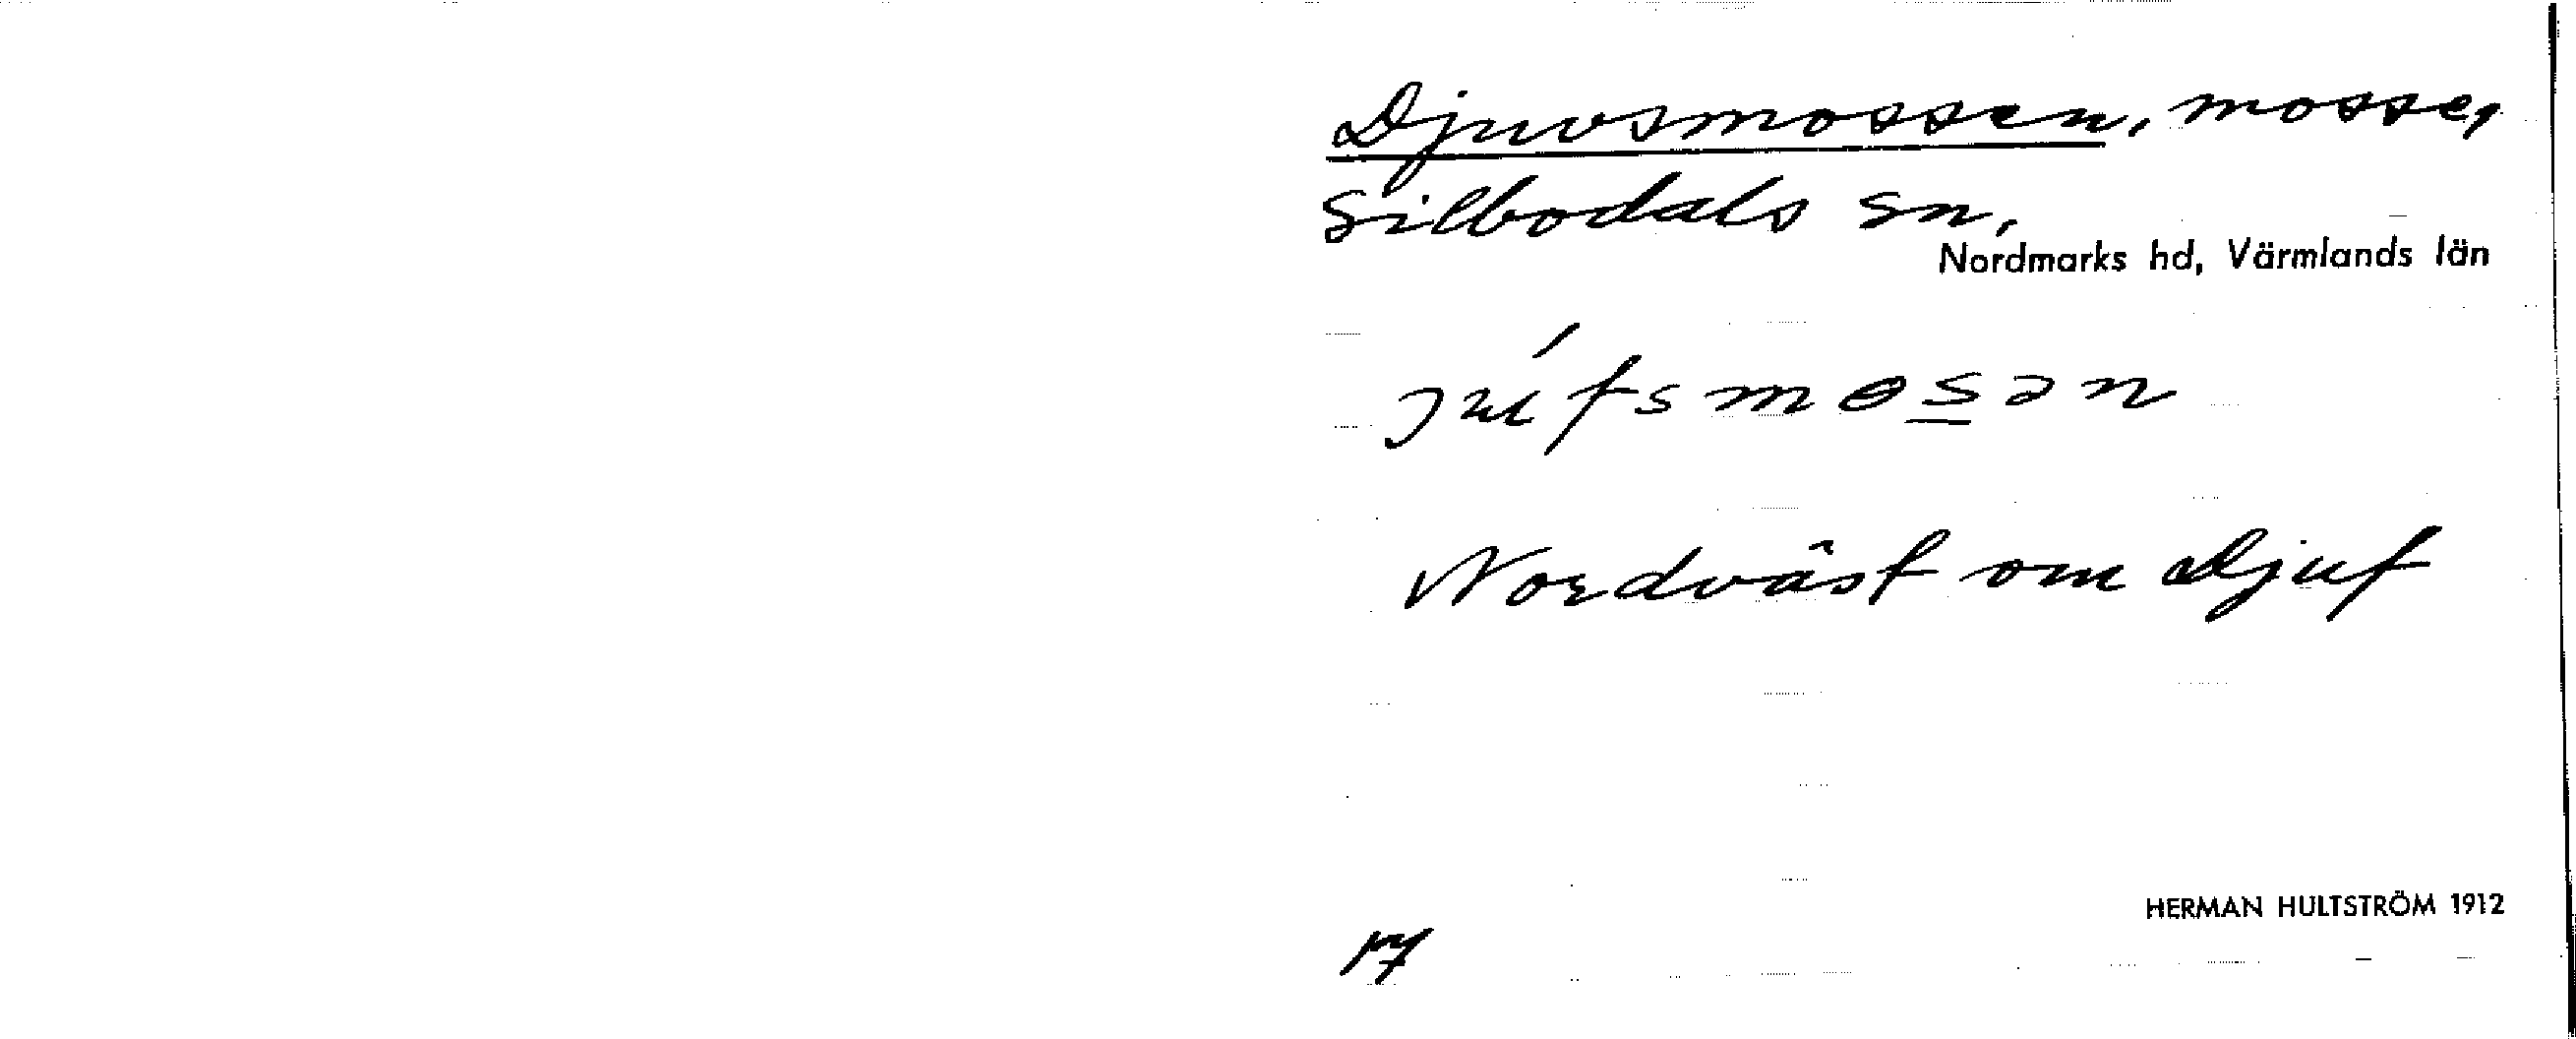 Djuvsmossen, mosse,
Silbodals sn,
Nordmarks hd, Värmlands län
Nordväst om Djuf
HERMAN HULTSTRÖM 1912
17